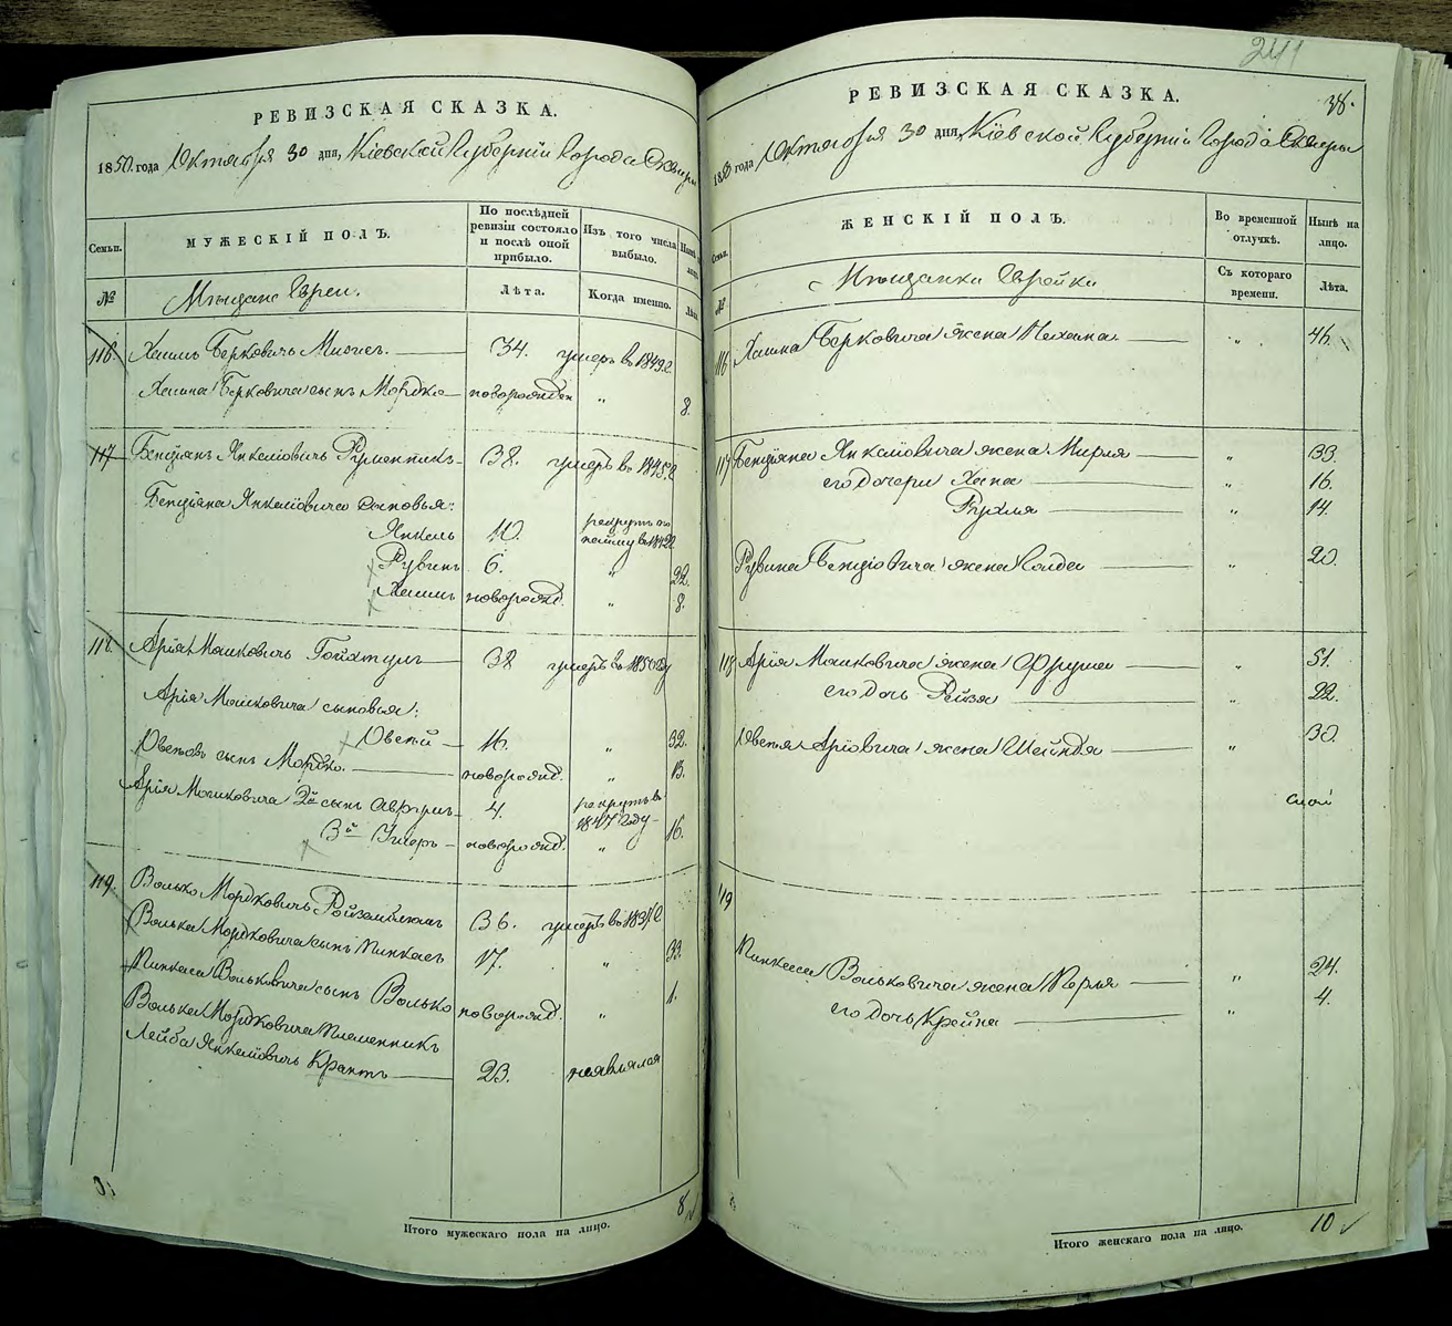 241
РЕВИЗСКАЯ СКАЗКА.
1850. года Октября 30 дня, Кіевской Губерніи Города Сквиры
Семьи.
МУЖЕСКІЙ ПОЛЪ.
По послѣдней ревизіи состояло и послѣ оной прибыло.
Изъ того числа выбыло.
№
Мѣщане Евреи.
Лѣта.
Когда именно.
Лѣта
116. Хаимъ Берковичь 34. умеръ в 1849 г.
Хаима Берковича сынъ Мордко новорожден „ 8.
117 Бенціянъ Янкелiовичь 38. умеръ в 1845 г
Бенціяна Янкелiовича сыновья:
Янкель 10. рекрутъ по найму в
Рувинъ 6. „ 22.
Хаимъ новорожд. „ 8.
118. Арія Мошковичь 38 умеръ в 1850 году
Арія Мошковича сыновья:
Овсѣй 16. „ 32.
сынъ Мордко. новорожд. „ 13.
Арія Мошковича 2й сынъ Аврумъ 4. рекрутъ в
1847 году
3й новорожд. „ 16.
119. Волько Мордковичь Ройзенблюмъ 36. умеръ в
Волька Мордковича сынъ Пинкасъ 17. „ 33.
Пинкаса Вольковича сынъ Волько новорожд. „ 1.
Волька Мордковича племенникъ
Лейба Янкелiовичь 23. неявлялся
Итого мужескаго пола на лицо. 8
РЕВИЗСКАЯ СКАЗКА. 38.
1850 года Октября 30 дня, Кіевской Губерніи Города Сквиры
ЖЕНСКІЙ ПОЛЪ.
Во временной отлучкѣ.
Нынѣ на лицо.
№
Мѣщанки Еврейки
Съ котораго времени.
Лѣта.
116 Хаима Берковича жена „ 46.
117 Бенціяна Янкелiовича жена Мирля „ 33.
его дочери Хана „ 16.
Рухля „ 14.
Рувина жена Голда „ 20.
118 Арія Мошковича жена Фрума „ 51.
его дочь Рейзя „ 22.
Овсѣя Аріовича жена Шейндя „ 30.
119
Пинкаса Вольковича жена Перля „ 24.
его дочь Крейна „ 4.
Итого женскаго пола на лицо. 10